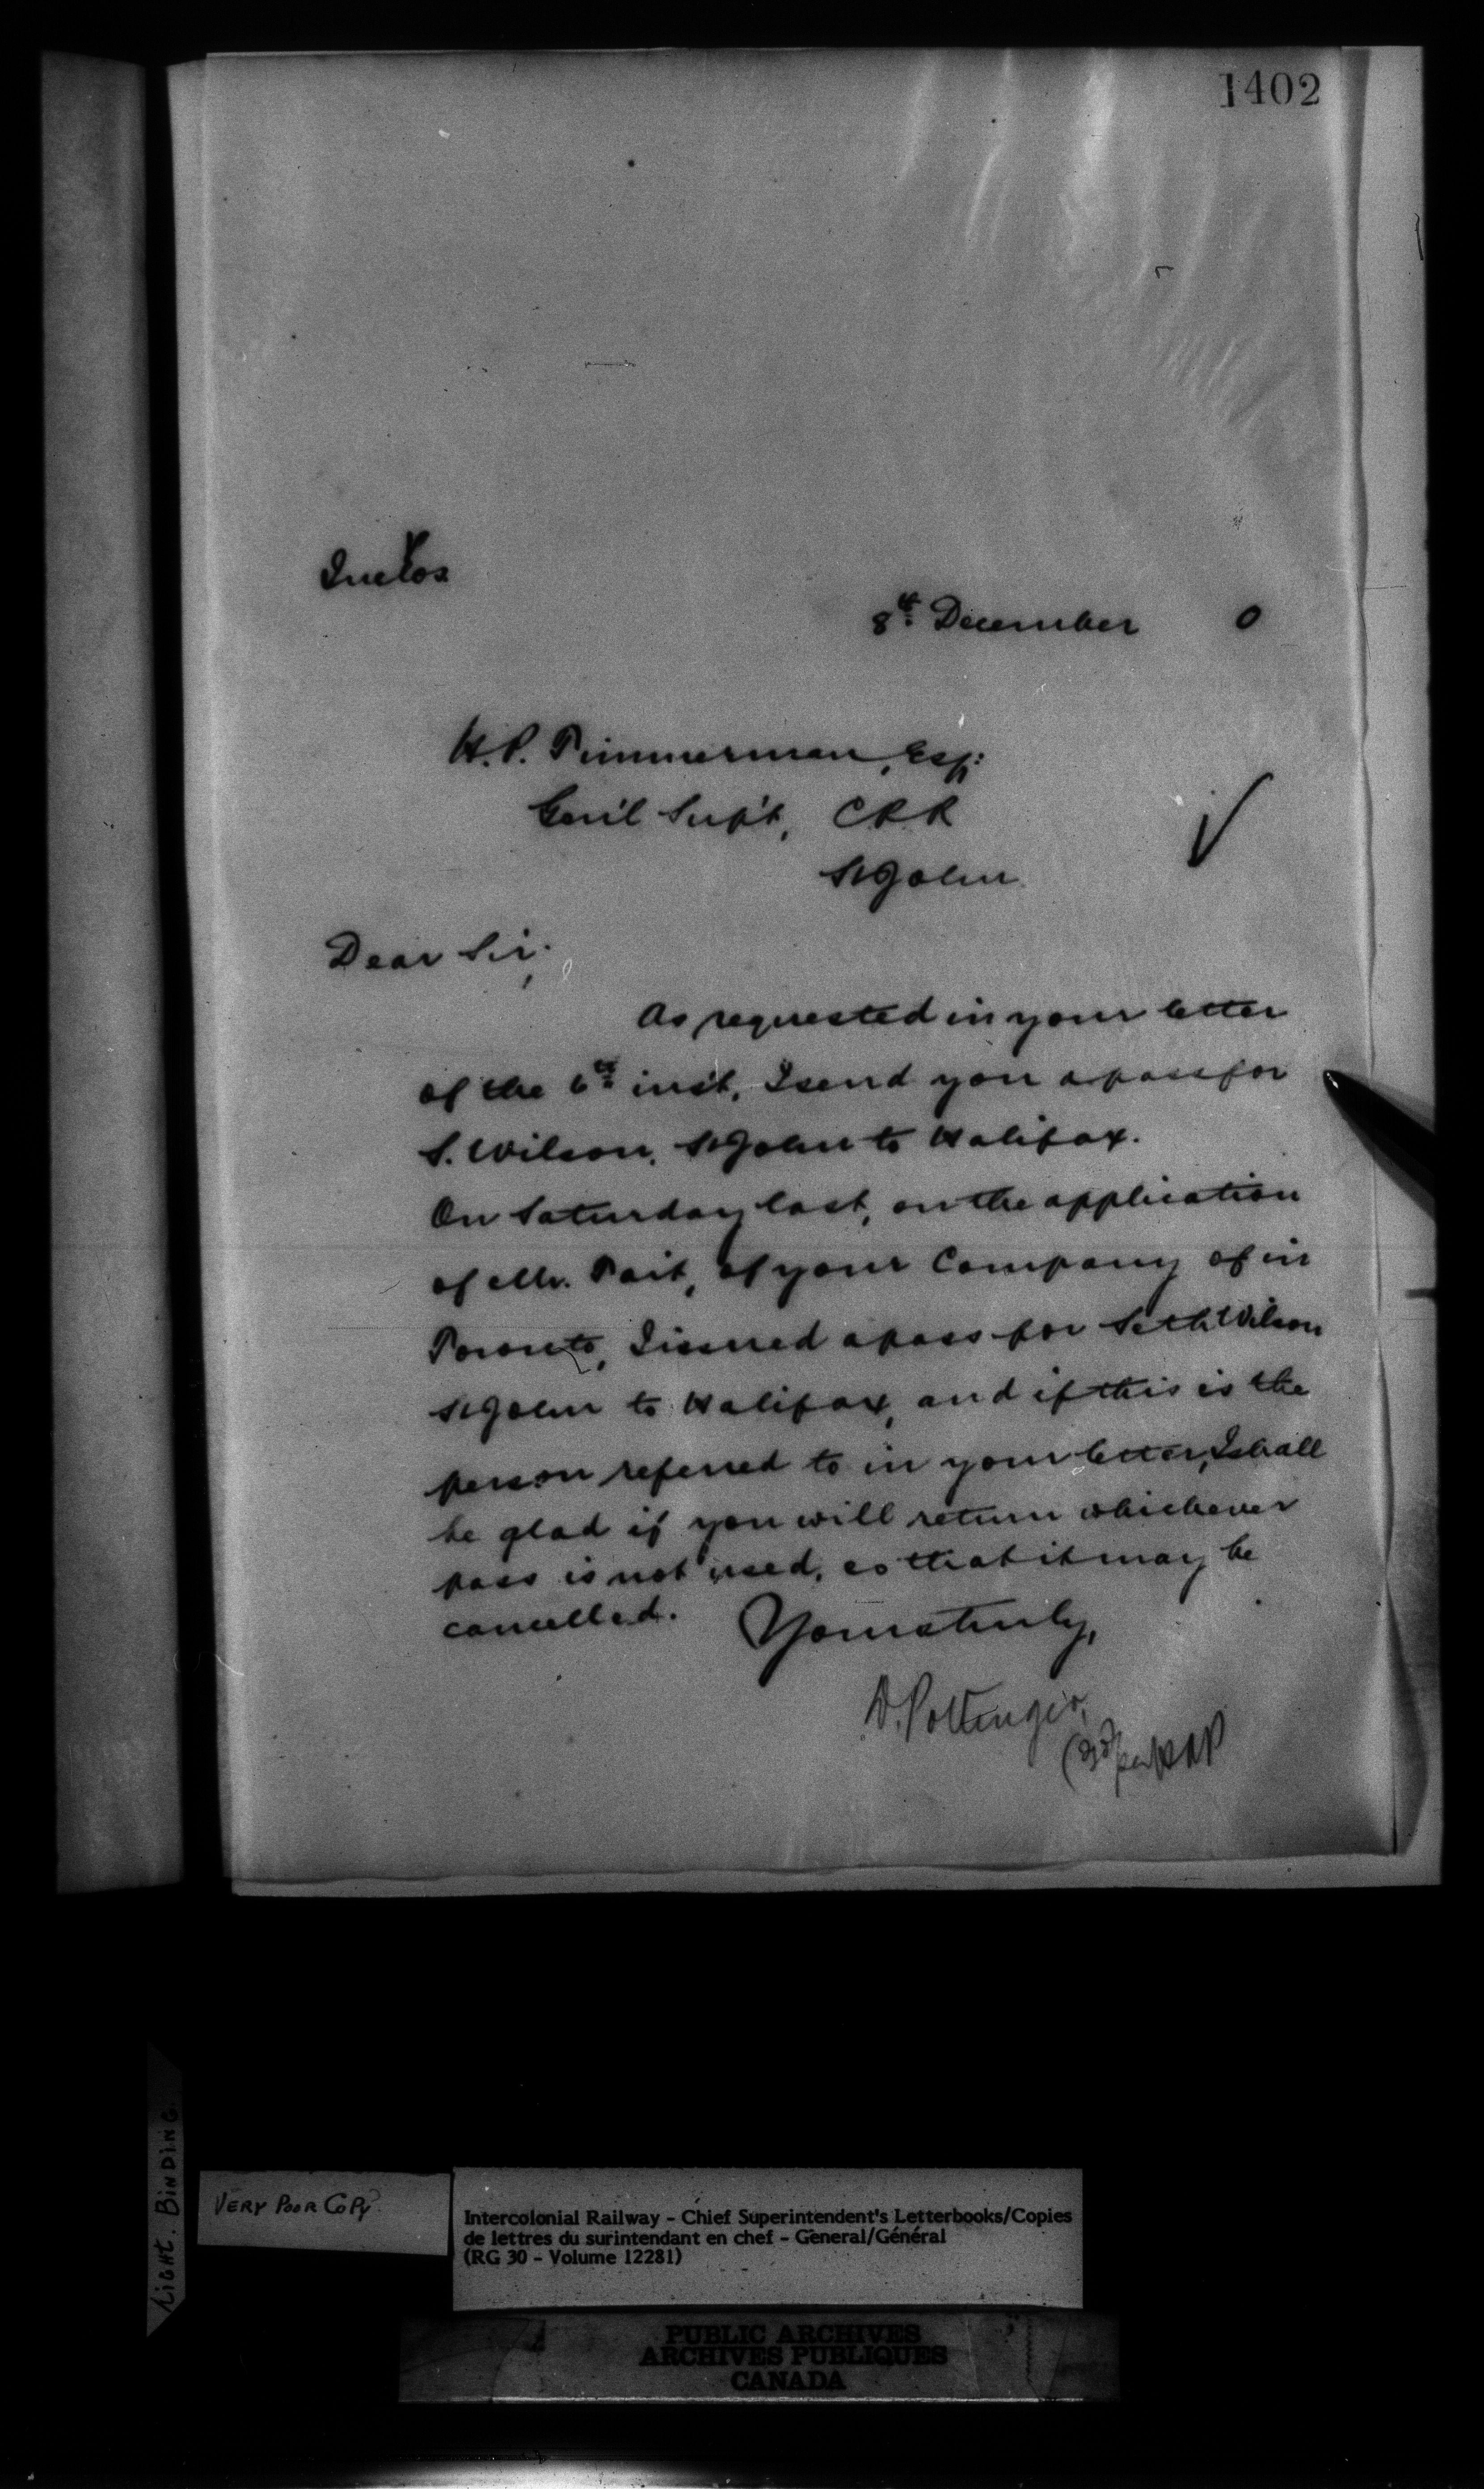 1402
Inclos
8th December 0
H.P. Timmerman, Esq:
Gen'l Sup't, CPR
St John
Dear Sir,
As requested in your letter
of the 6th inst, I send you a pass for
S. Wilson, St John to Halifax.
On Saturday last, on the application
of Mr. Tait, of your Company of in
Toronto, I issued a pass for Seth Wilson
St John to Halifax, and if this is the
person referred to in your letter, I shall
be glad if you will return whichever
pass is not used, so that it may be
cancelled.
Yours truly,
D. Pottinger,
VERY POOR COPY
TIGHT. BINDING.
Intercolonial Railway - Chief Superintendent's Letterbooks/Copies
de lettres du surintendant en chef - General/Général
(RG 30 - Volume 12281)
PUBLIC ARCHIVES
ARCHIVES PUBLIQUES
CANADA